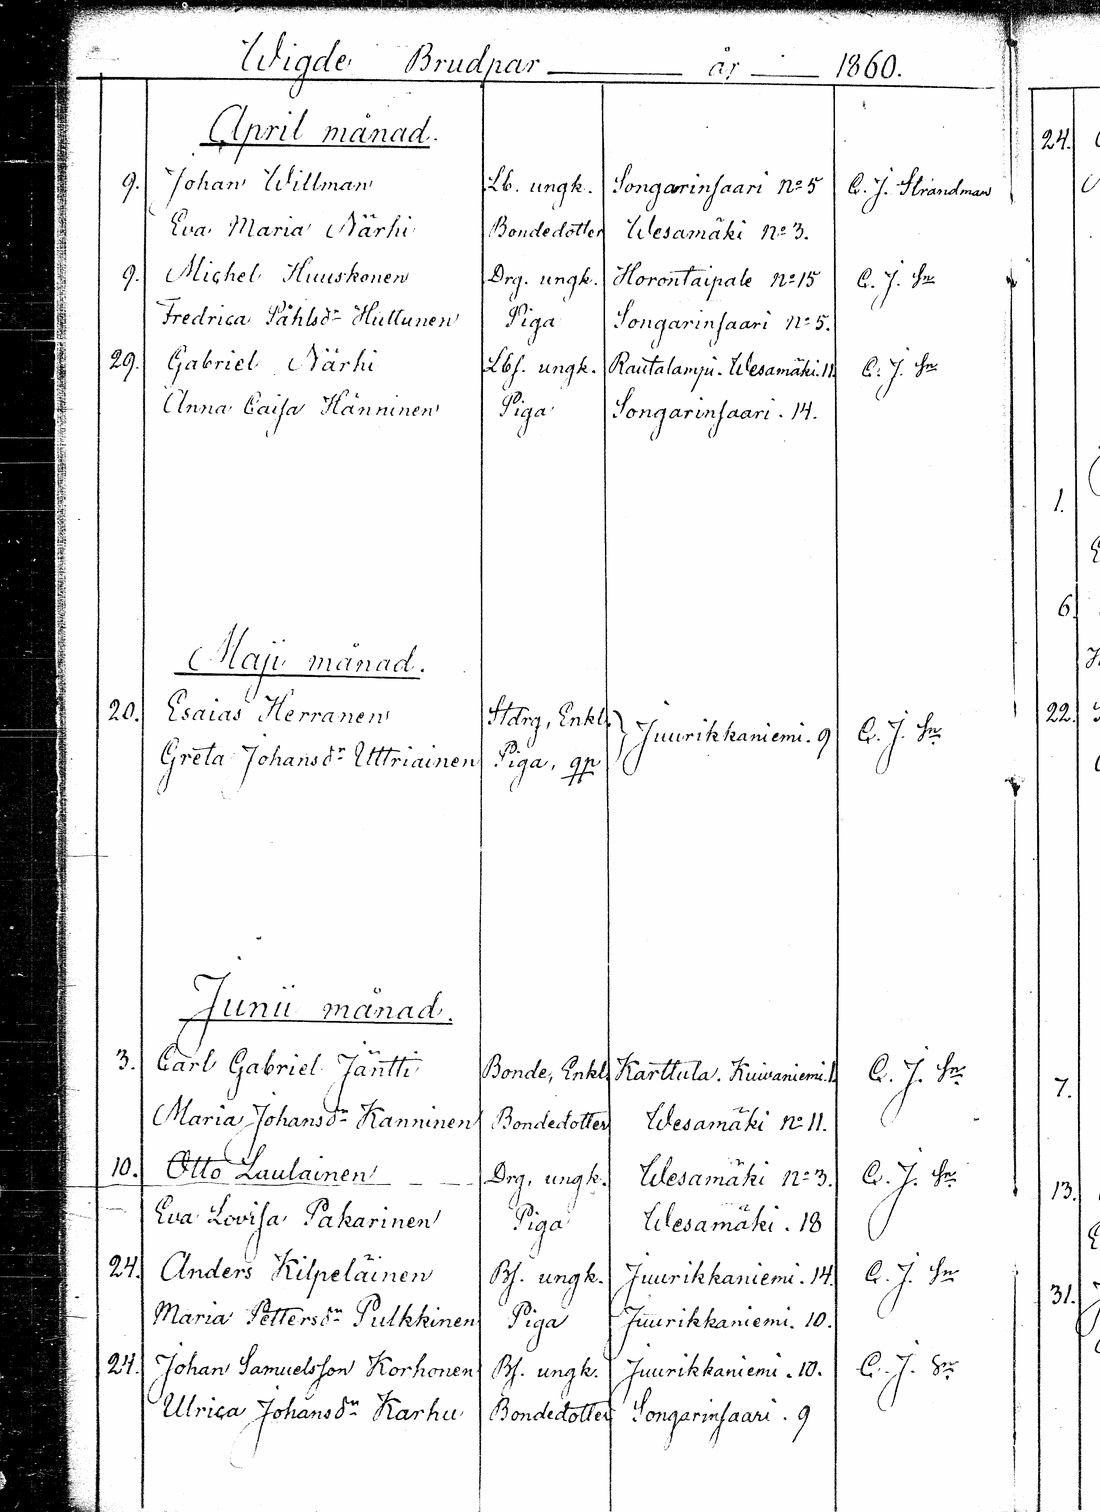 Wigde Brudpar år 1860.
April månad.
9. Johan Willman Lb. ungk. Songarinsaari No 5 C. J. Strandman
Eva Maria Närhi Bondedotter Wesamäki No 3.
9. Michel Huuskonen Drg. ungk. Horontaipale No 15 C. J. Sn
Fredrica Påhlsdr Huttunen Piga Songarinsaari No 5.
29. Gabriel Närhi Lbs. ungk. Rautalampi. Wesamäki. 11. C. J. Sn
Anna Caisa Hänninen Piga Songarinsaari. 14.
Maji månad.
20. Esaias Herranen Stdrg, Enkl. } Juurikkaniemi. 9 C. J. Sn
Greta Johansdr Uttriainen Piga, qp
Junii månad.
3. Carl Gabriel Jäntti Bonde, Enkl. Karttula. Kuivaniemi. C. J. Sn
Maria Johansdr Kanninen Bondedotter Wesamäki No 11.
10. Otto Laulainen Drg, ungk. Wesamäki No 3. C. J. Sn
Eva Lovisa Pakarinen Piga Wesamäki. 18
24. Anders Kilpeläinen Bs. ungk. Juurikkaniemi. 14. C. J. Sn
Maria Pettersdr Pulkkinen Piga Juurikkaniemi. 10.
24. Johan Samuelsson Korhonen Bs. ungk. Juurikkaniemi. 10. C. J. Sn
Ulrica Johansdr Karhu Bondedotter Songarinsaari. 9
24.
1.
6.
22.
7.
13.
31.